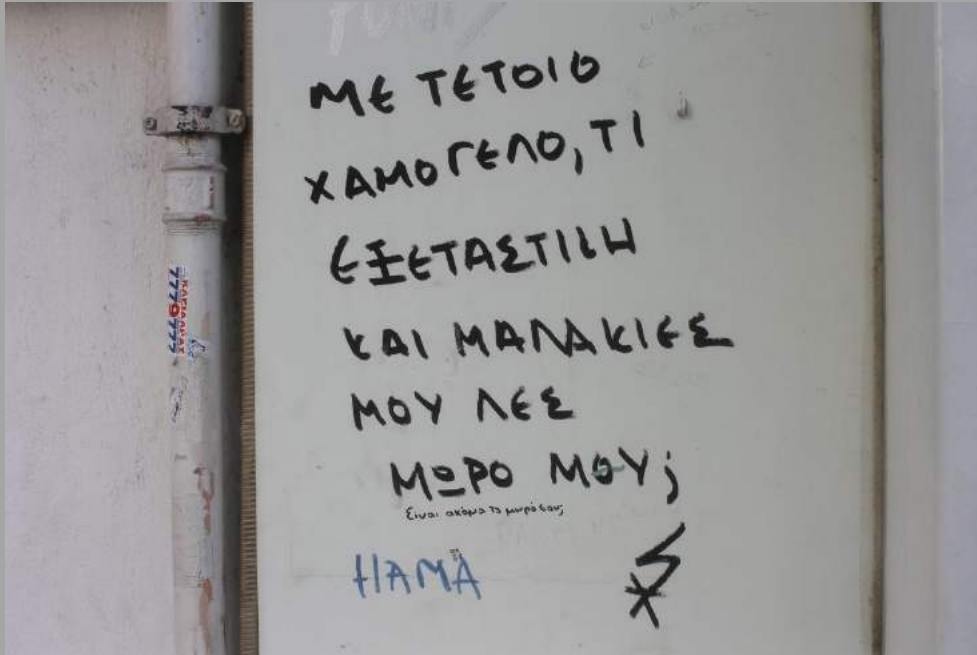 ΜΕ ΤΕΤΟΙΟ
ΧΑΜΟΓΕΛΟ, ΤΙ
ΕΞΕΤΑΣΤΙΚΗ
ΚΑΙ ΜΑΛΑΚΙΕΣ
ΜΟΥ ΛΕΣ
ΜΩΡΟ ΜΟΥ;
Είναι ακόμα το μωρό σου;
ΗΑΜΑ
7779777